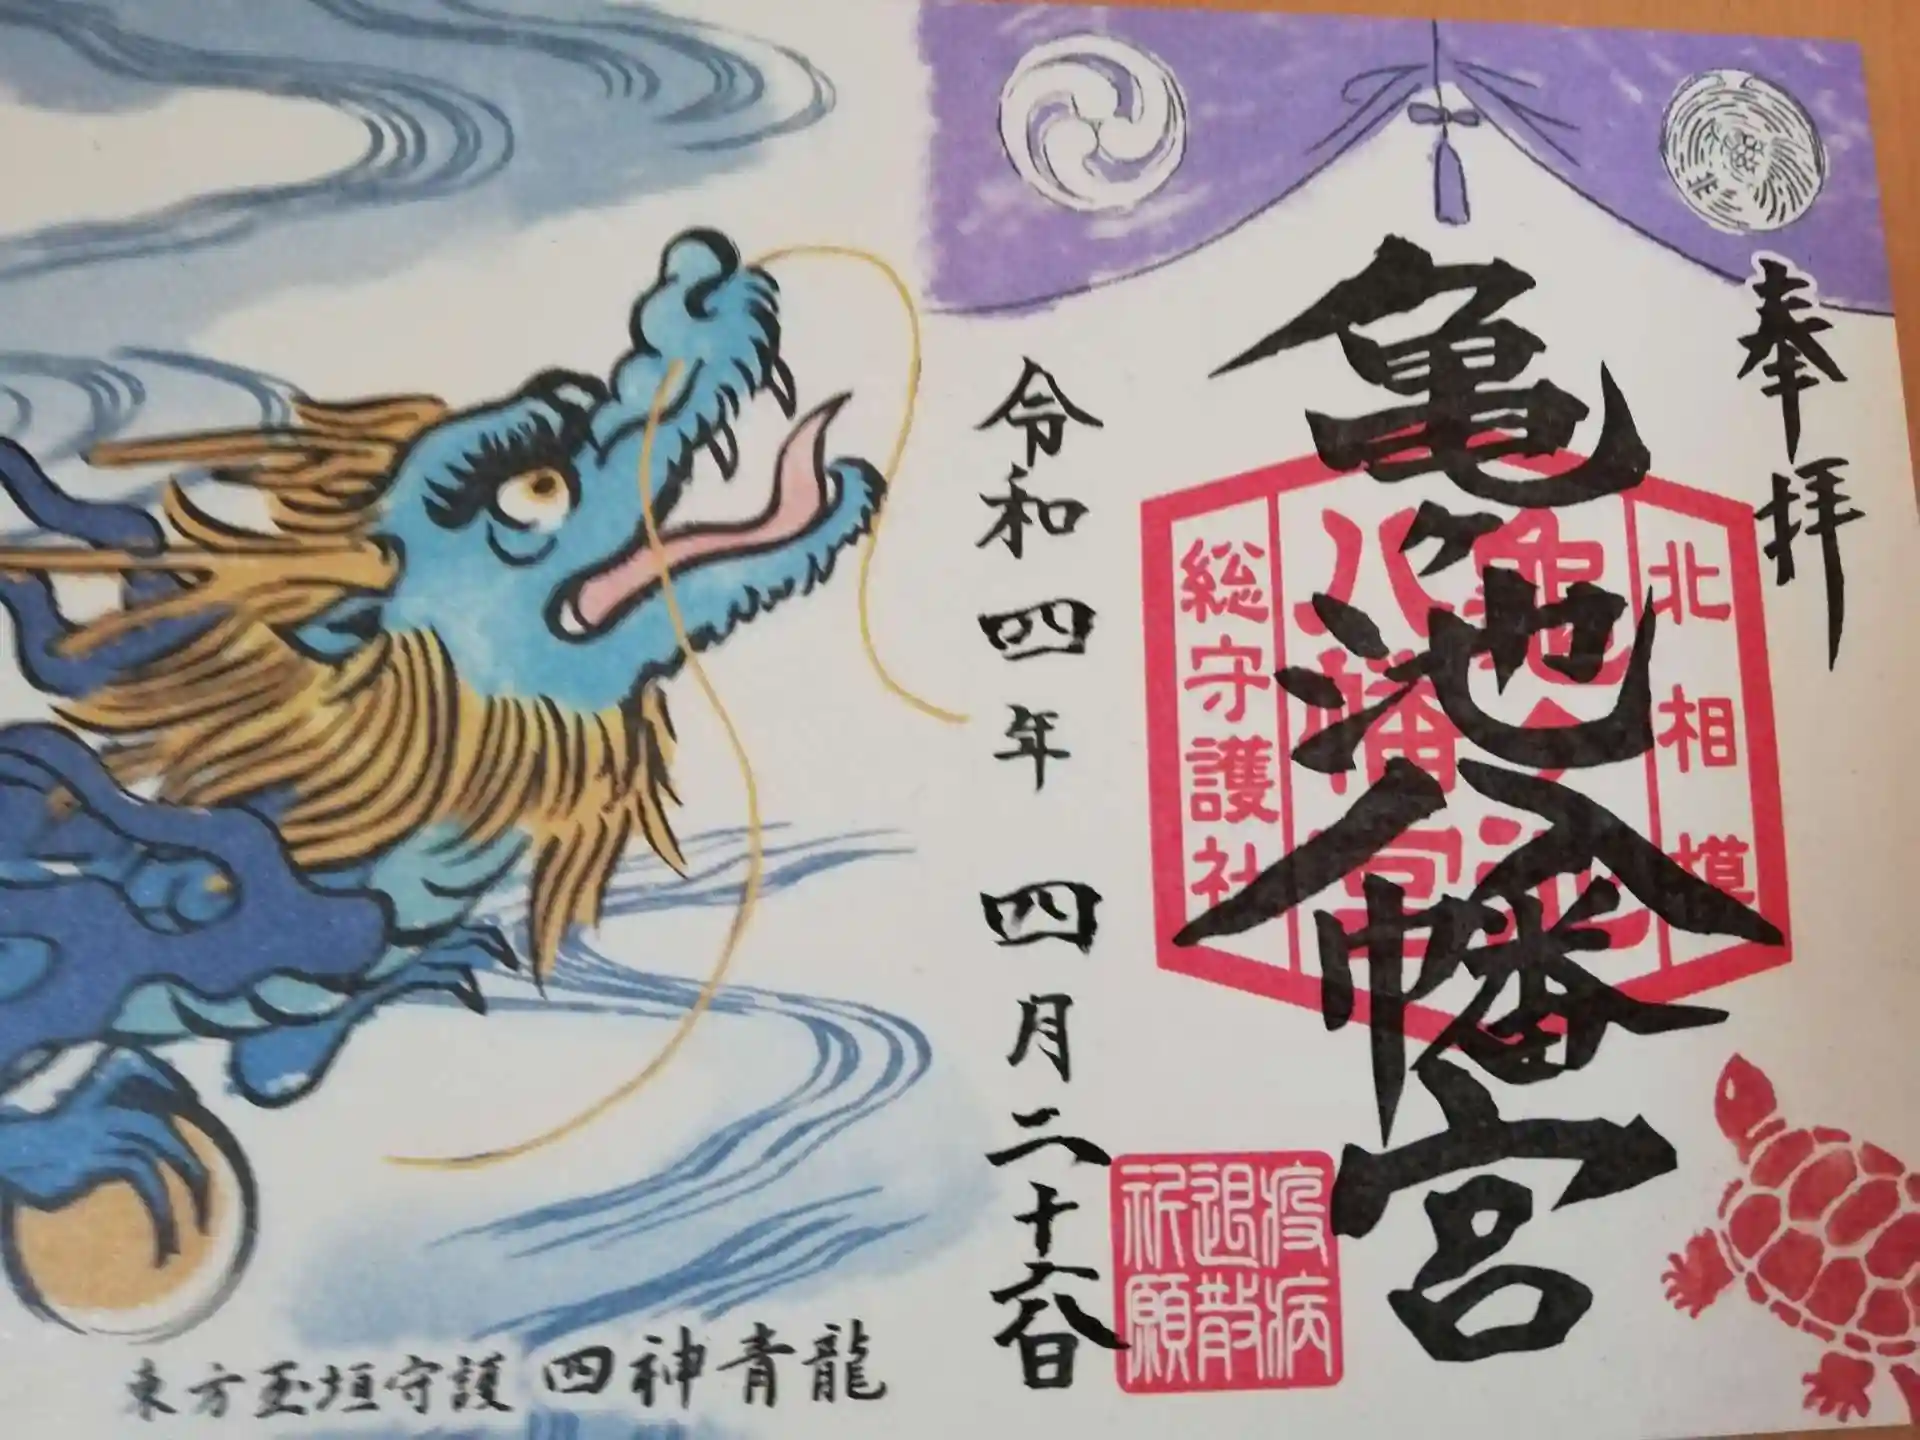 奉拝
亀ヶ池八幡宮
北相模
亀ヶ池
八幡宮
総守護社
疫病
退散
祈願
令和四年 四月二十六日
東方玉垣守護 四神青龍
北